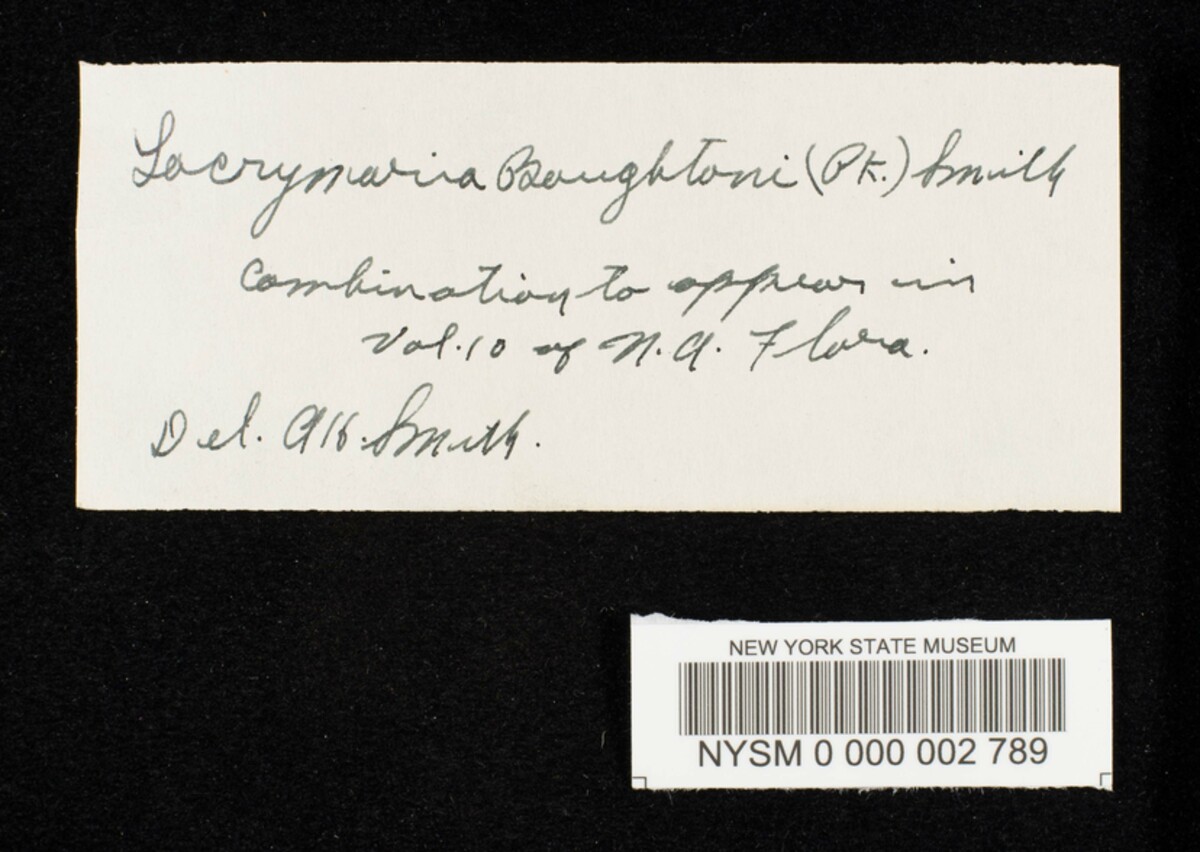 Lacrymaria Boughtoni (Pk.) Smith
combination to appear in
Vol. 10 of N. A. Flora.
Det. AH. Smith.
NEW YORK STATE MUSEUM
NYSM 0 000 002 789